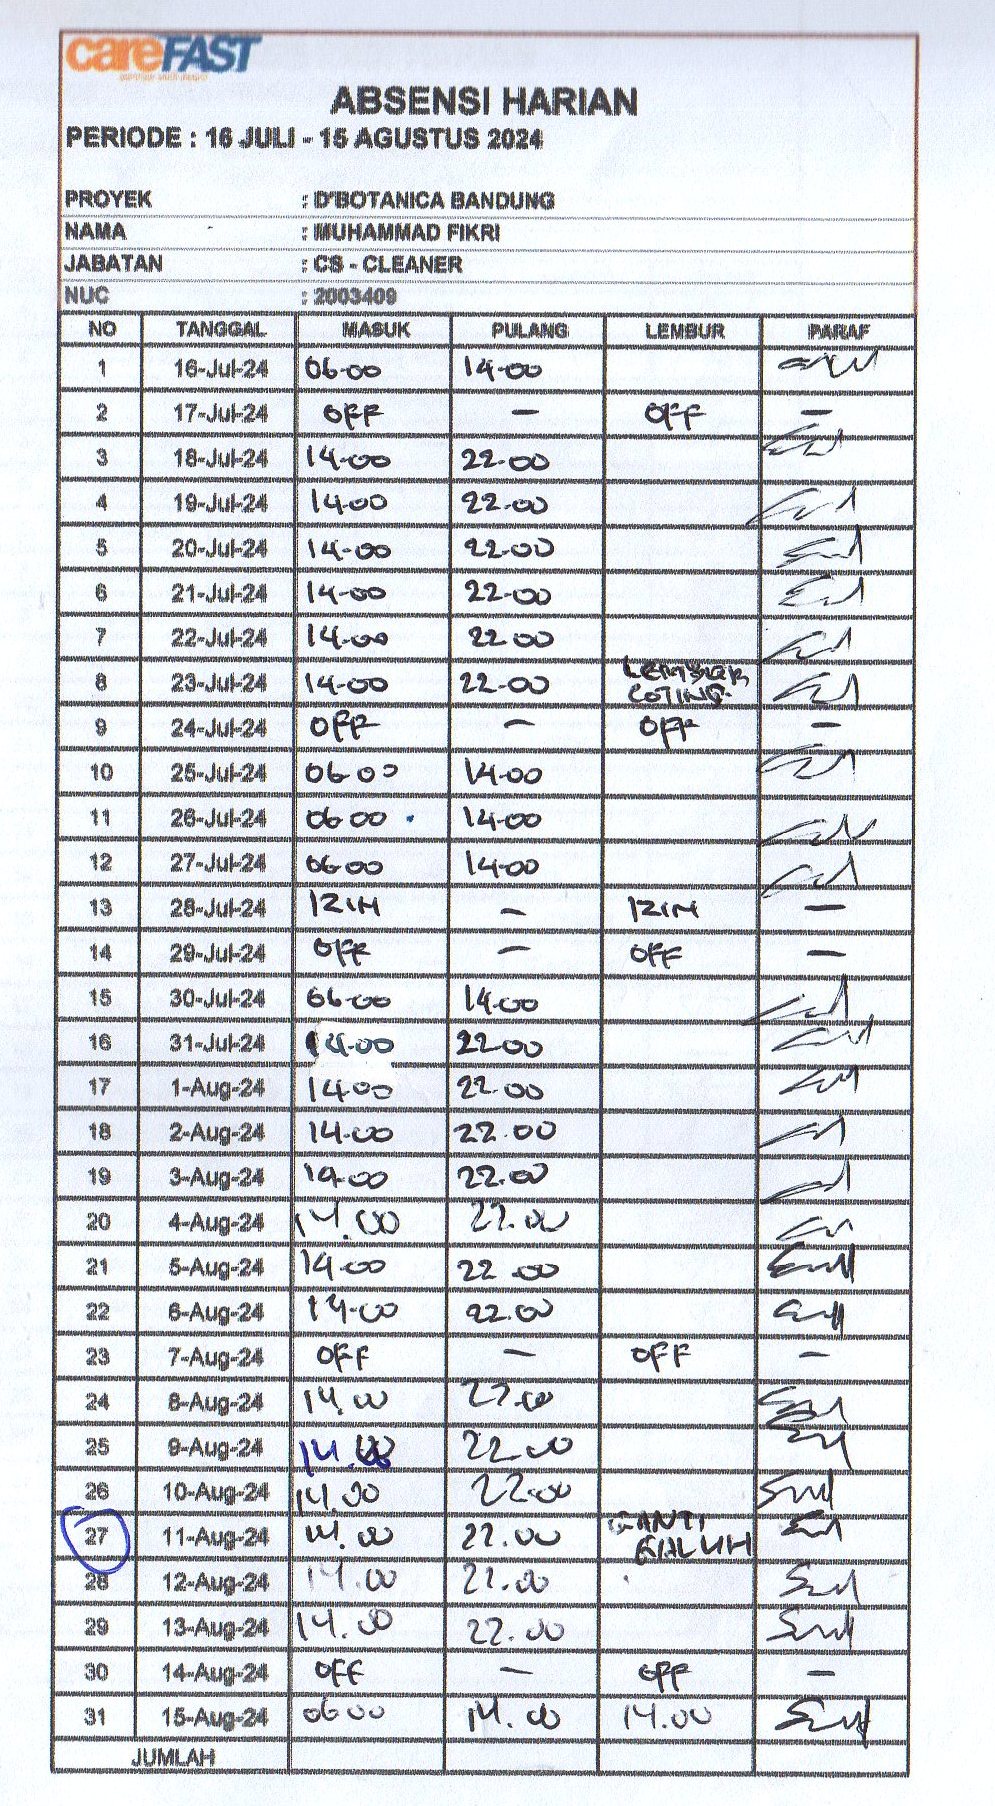 careFAST
ABSENSI HARIAN
PERIODE : 16 JULI - 15 AGUSTUS 2024
PROYEK : D'BOTANICA BANDUNG
NAMA : MUHAMMAD FIKRI
JABATAN : CS - CLEANER
NUC : 2003409
NO TANGGAL MASUK PULANG LEMBUR PARAF
1 16-Jul-24 06-00 14-00
2 17-Jul-24 OFF - OFF -
3 18-Jul-24 14-00 22-00
4 19-Jul-24 14-00 22-00
5 20-Jul-24 14-00 22-00
6 21-Jul-24 14-00 22-00
7 22-Jul-24 14-00 22 00
8 23-Jul-24 14-00 22-00 LEMBUR COTING
9 24-Jul-24 OFF - OFF -
10 25-Jul-24 06 00 14-00
11 26-Jul-24 06 00 14-00
12 27-Jul-24 06-00 14-00
13 28-Jul-24 IZIN - IZIN -
14 29-Jul-24 OFF - OFF -
15 30-Jul-24 06-00 14-00
16 31-Jul-24 14-00 22 00
17 1-Aug-24 14-00 22-00
18 2-Aug-24 14-00 22.00
19 3-Aug-24 14-00 22.00
20 4-Aug-24 14.00 22.00
21 5-Aug-24 14-00 22.00
22 6-Aug-24 14-00 22.00
23 7-Aug-24 OFF - OFF -
24 8-Aug-24 14.00 22.00
25 9-Aug-24 14.00 22.00
26 10-Aug-24 14.00 22.00
27 11-Aug-24 14.00 22.00 GANTI
28 12-Aug-24 14.00 22.00
29 13-Aug-24 14.00 22.00
30 14-Aug-24 OFF - OFF -
31 15-Aug-24 06 00 14.00 14.00
JUMLAH